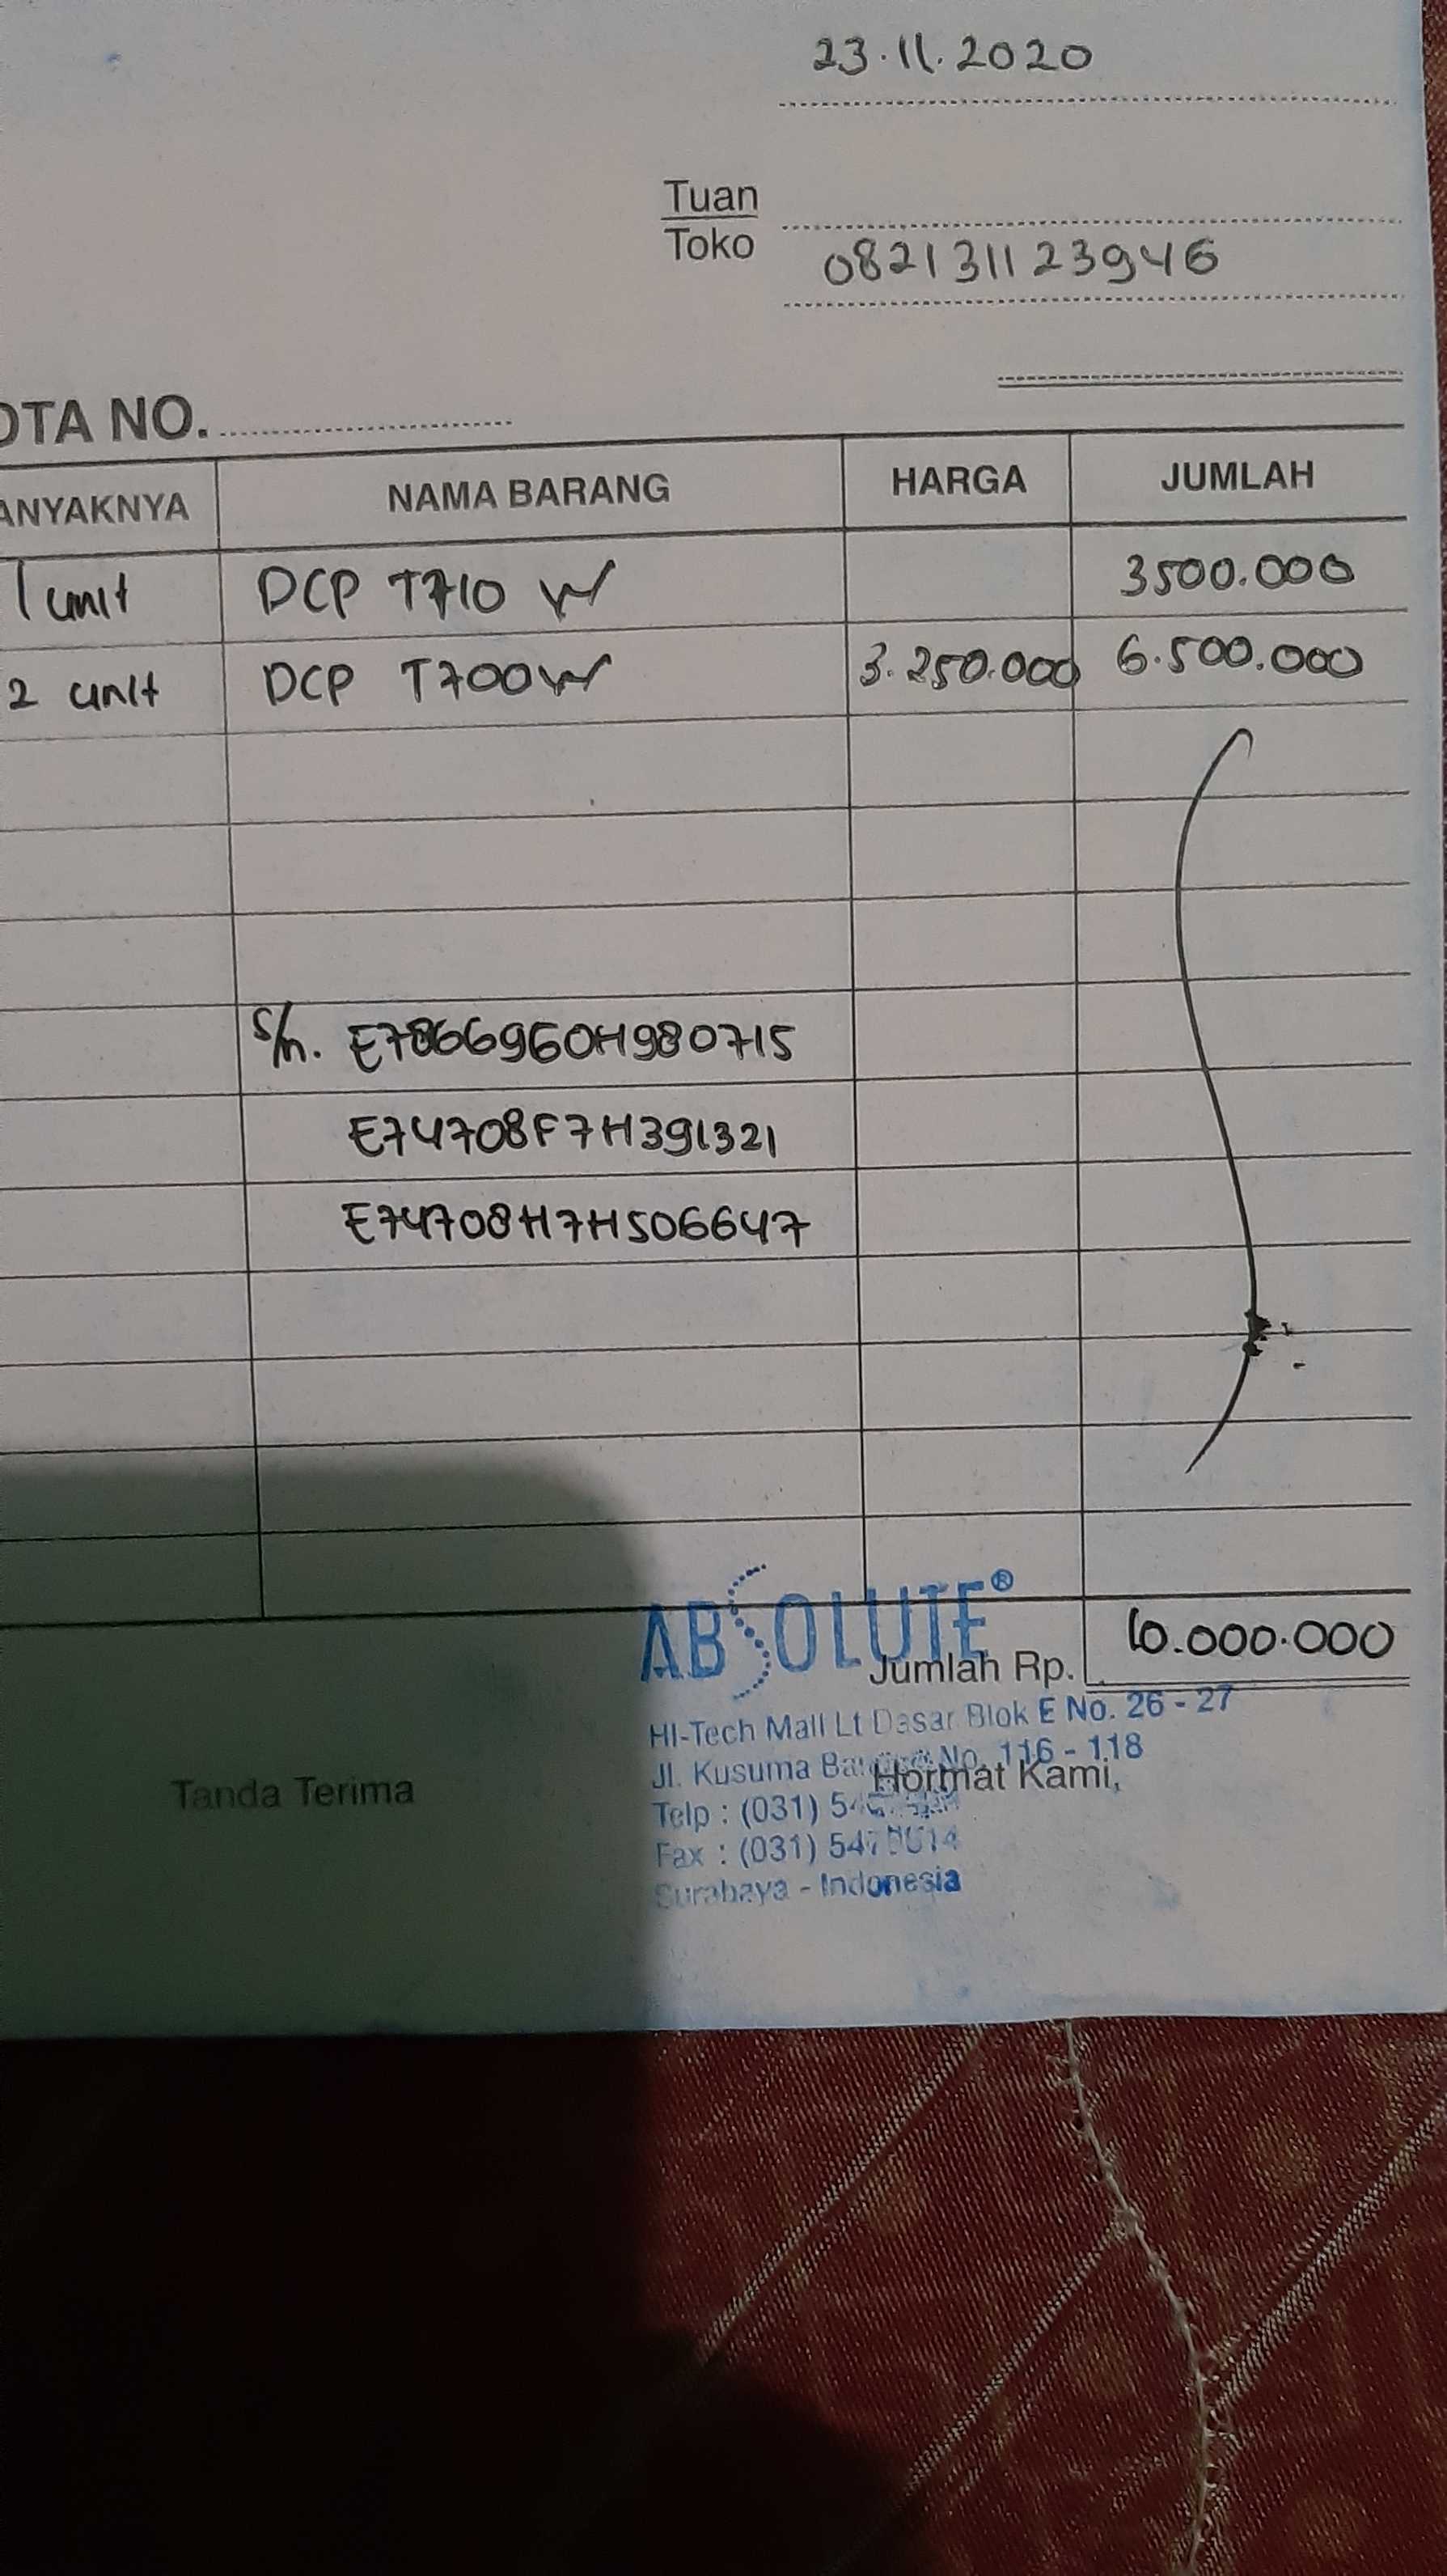 23.11.2020
Tuan
Toko
082131123946
OTA NO.
ANYAKNYA NAMA BARANG HARGA JUMLAH
1 unit DCP T710 W 3500.000
2 unit DCP T700W 3.250.000 6.500.000
S/n. E7866960H980715
E74708F7H391321
E74708H7H506647
ABSOLUTE®
Jumlah Rp. 10.000.000
HI-Tech Mall Lt Dasar Blok E No. 26 - 27
Jl. Kusuma No. 116 - 118
Hormat Kami,
Tanda Terima
Telp : (031)
Fax : (031)
Surabaya - Indonesia